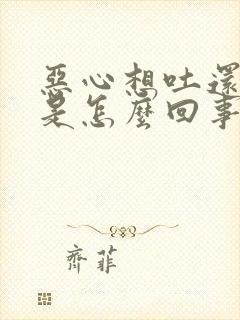 惡心想吐還
是怎麼回事
齊菲